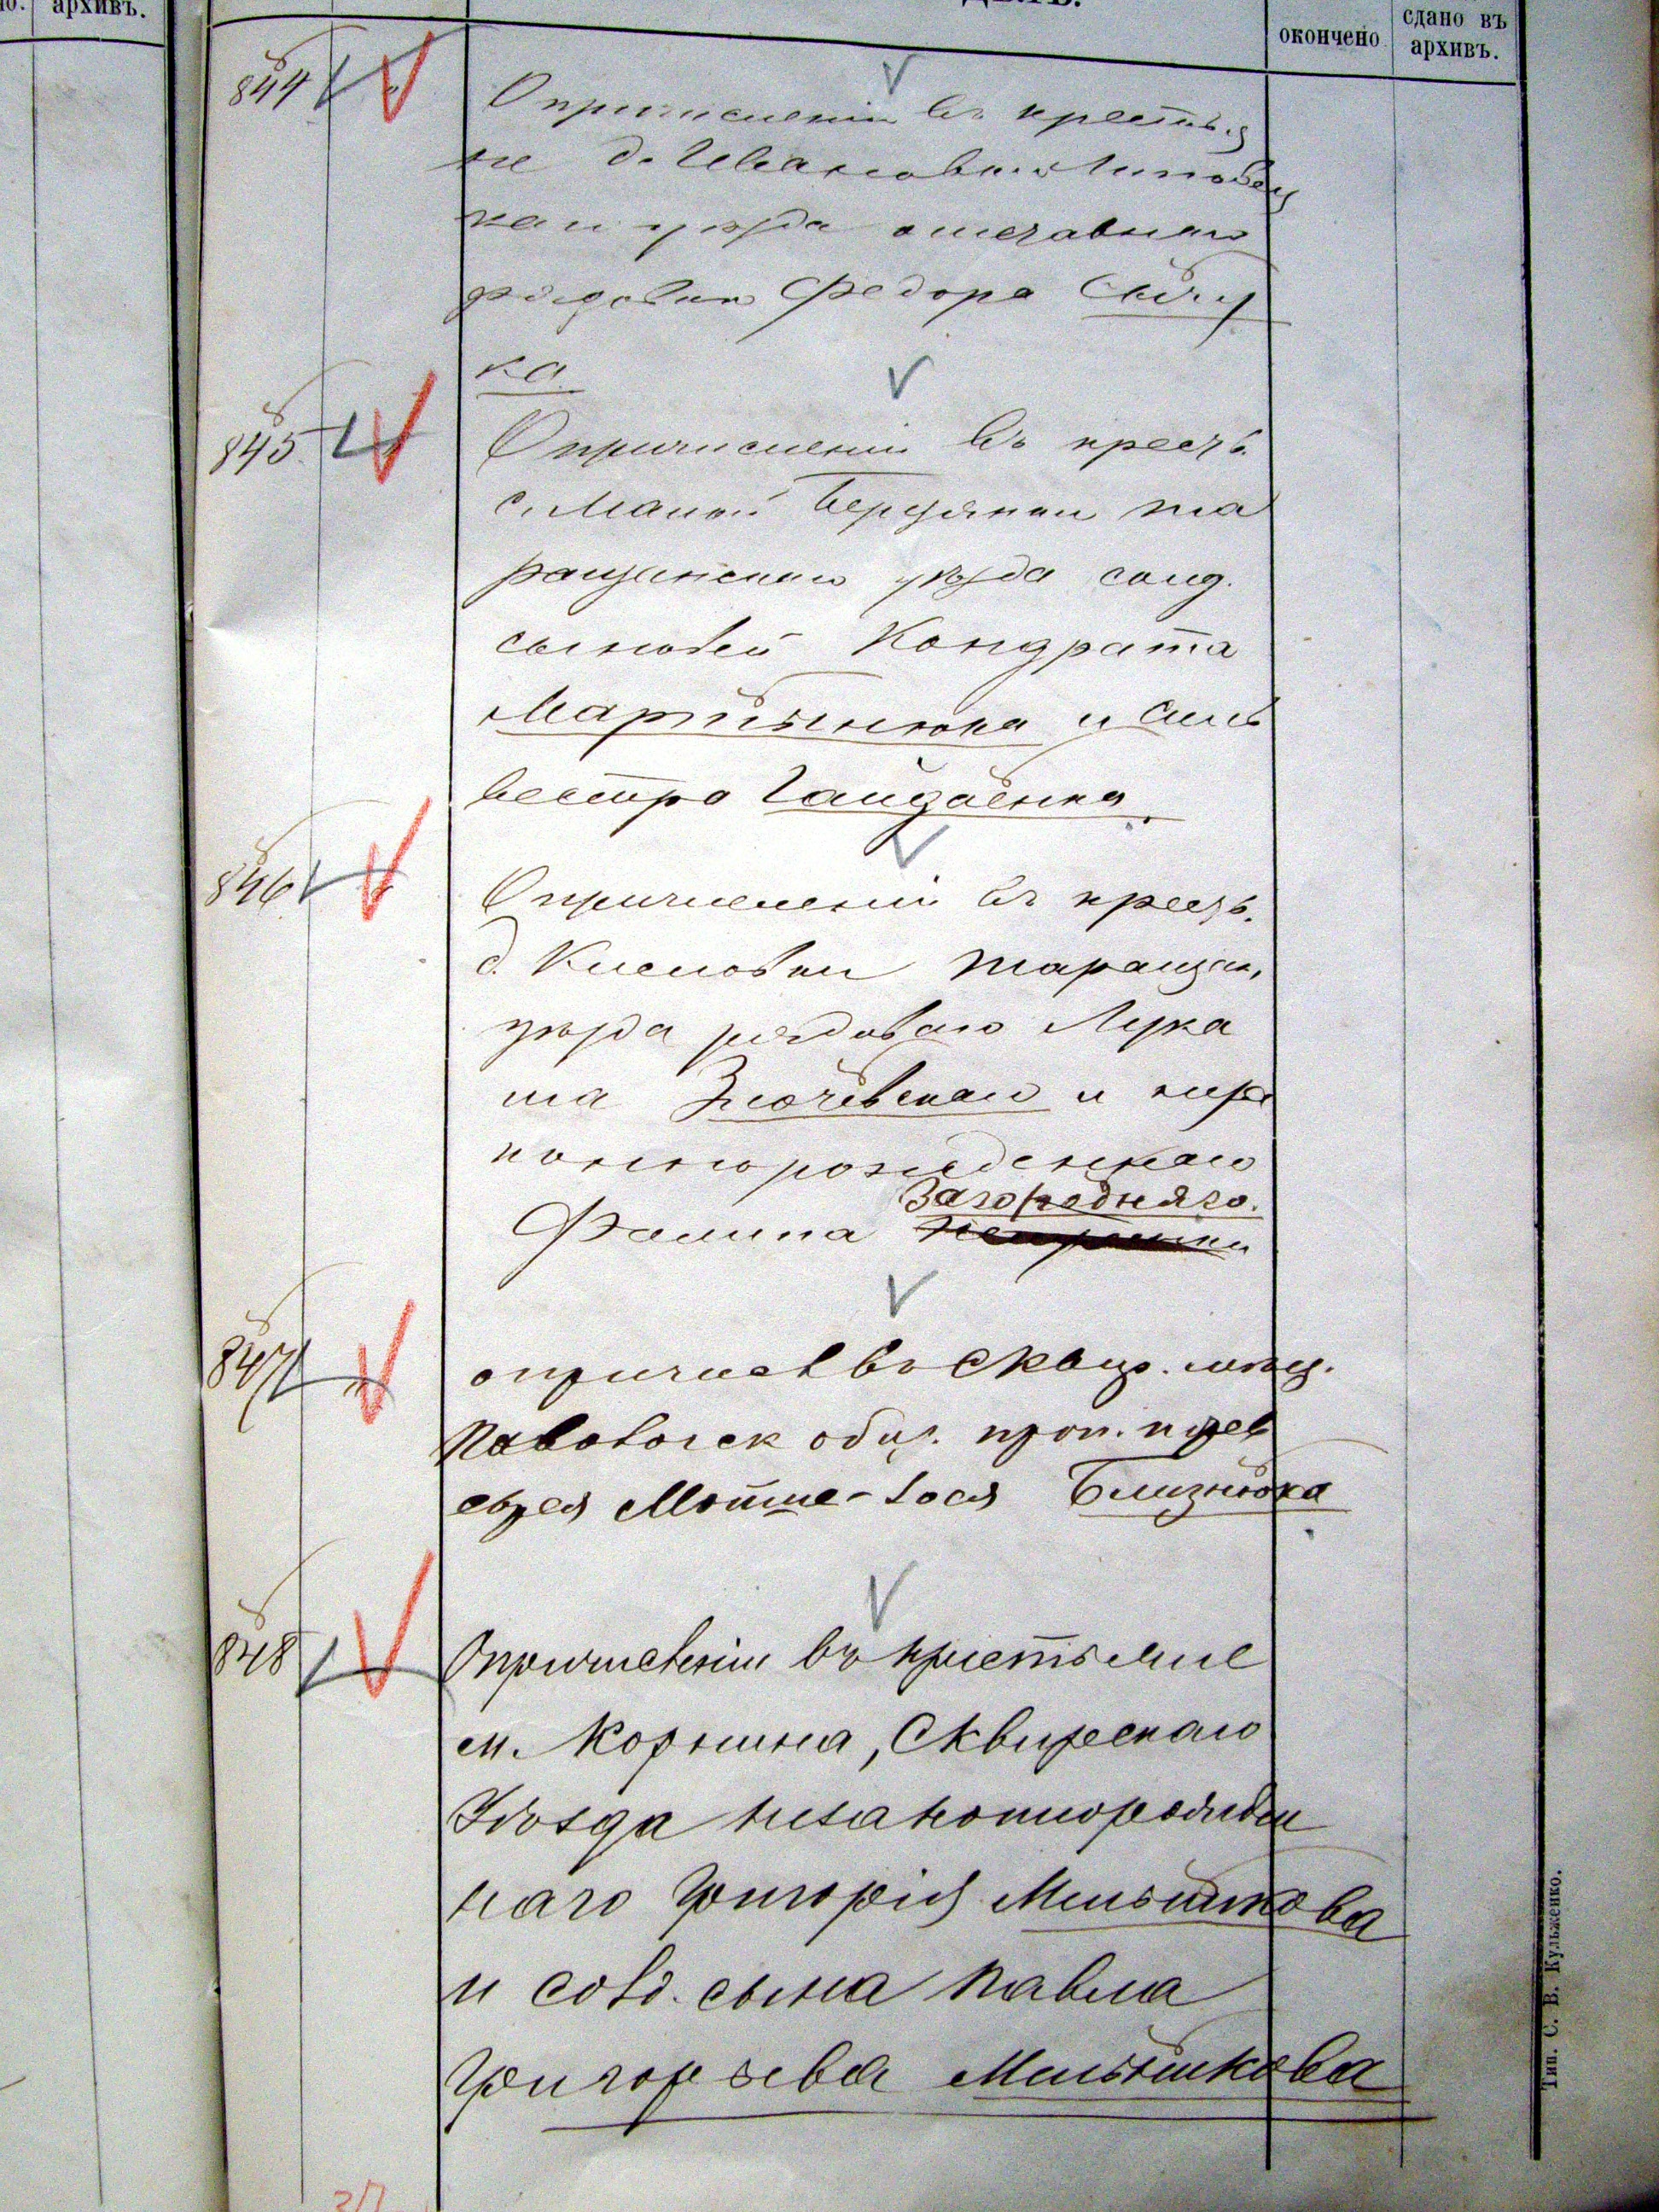 архивъ.
окончено
сдано въ
архивъ.
844
О причисленіи въ крестья
не д. Ивановки Липовец
каго уѣзда отставнаго
рядоваго Федора Савчу
ка
845
О причисленіи въ крест.
с. Малой Березянки Та
ращанскаго уѣзда солд.
сыновей Кондрата
Мартынюка и Силь
вестра Гайдаенка
846
О причисленіи въ крест.
д. Кисловки Таращан.
уѣзда рядоваго Лука
ша и неза
коннорожденнаго
Филипа
Загородняго.
847
о причисл въ Сквир. мѣщ.
Паволоцк общ. проп.
еврея Мойше-Іося Близнюка
848
О причисленіи въ крестьяне
м. Корнина, Сквирскаго
Уѣзда незаконнорожден
наго Григорія Мельникова
и солд. сына Павла
Григорьева Мельникова
Тип. С. В. Кульженко.